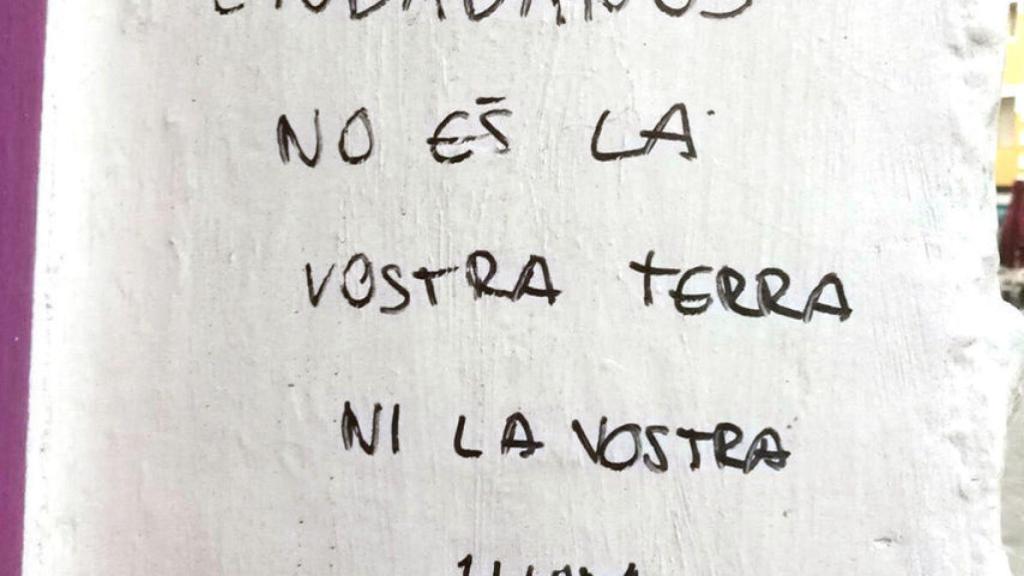 NO ES LA
VOSTRA TERRA
NI LA VOSTRA